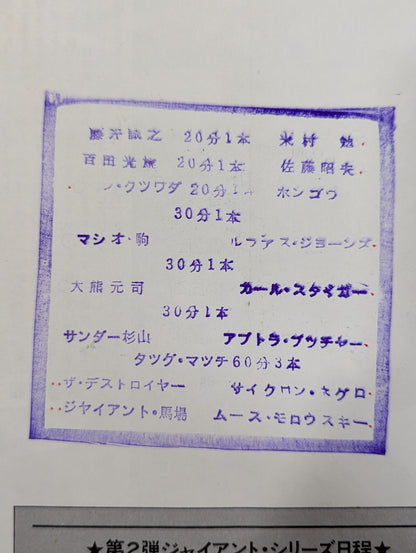 藤井誠之 20分1本 米村 勉.
百田光雄 20分1本 佐藤昭夫.
・クツワダ 20分1本 ホンゴウ
30分1本
マシオ・駒 ルファス・ジョーンズ.
30分1本
大熊元司 カール・スタイガー.
30分1本
サンダー杉山 アブトラ・ブッチャー.
タッグ・マッチ60分3本
ザ・デストロイヤー サイクロン・ネグロ.
ジャイアント・馬場 ムース・モロウスキー.
★第2弾ジャイアント・シリーズ日程★